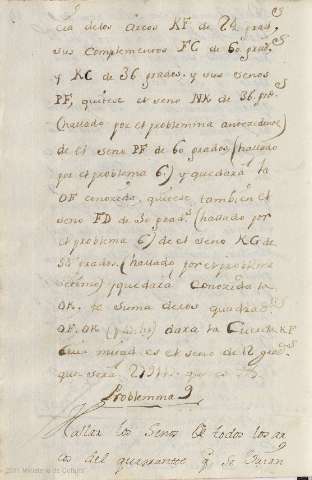 cia de los Arcos KF de 24 grad.s
sus complementos FC de 60 grad.s
y KC de 36 grados. y sus senos
PF, quitese el seno NK de 36 gr.s
(hallado por el problemma antecedente)
de el seno PF de 60 grados (hallado
por el problema 6) y quedarà la
OF conocida, quitese tambien el
seno FD de 30 grad.s (hallado por
el problema 6) de el seno KG de
54 grados (hallado por el problema
septimo) y quedarà Conocida la
OK. la suma de los quadrad.s
OF. OK darà la Cuerda KF
Cuia mitad es el seno de 12 grad.s
que serà
Problemma 9
Hallar los Senos de todos los ar
cos del quadrante q se varian
2011 Ministerio de Cultura